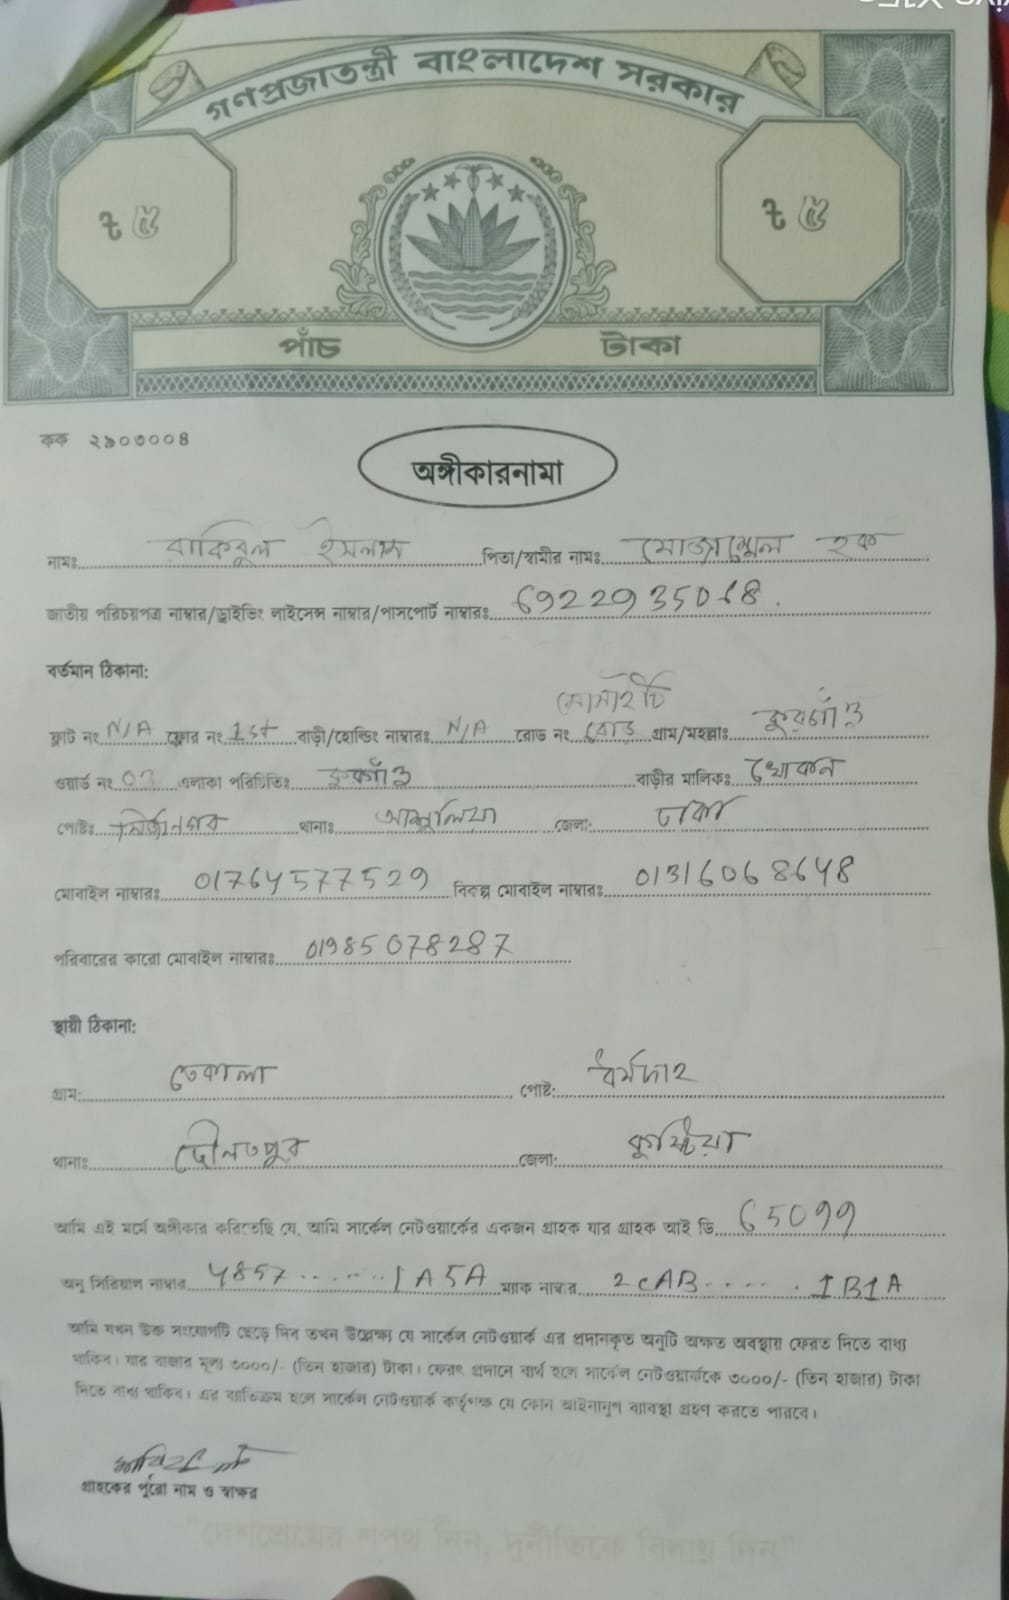 গণপ্রজাতন্ত্রী বাংলাদেশ সরকার
৳ ৫ ৳ ৫
পাঁচ টাকা
কক ২৯০৩০০৪
অঙ্গীকারনামা
নামঃ রাকিবুল ইসলাম পিতা/স্বামীর নামঃ মোজাম্মেল হক
জাতীয় পরিচয়পত্র নাম্বার/ড্রাইভিং লাইসেন্স নাম্বার/পাসপোর্ট নাম্বারঃ 6922935068.
বর্তমান ঠিকানা:
সোসাইটি
ফ্লাট নং N/A ফ্লোর নং 1st বাড়ী/হোল্ডিং নাম্বারঃ N/A রোড নং রোড গ্রাম/মহল্লাঃ কুরগাঁও
ওয়ার্ড নং এলাকা পরিচিতিঃ কুরগাঁও বাড়ীর মালিকঃ খোকন
পোষ্টঃ মির্জানগর থানাঃ আশুলিয়া জেলা: ঢাকা
মোবাইল নাম্বারঃ 01764577529 বিকল্প মোবাইল নাম্বারঃ 01316068648
পরিবারের কারো মোবাইল নাম্বারঃ 01985078287
স্থায়ী ঠিকানা:
গ্রাম: তেকালা পোষ্ট: ধর্মদাহ
থানাঃ দৌলতপুর জেলা: কুষ্টিয়া
আমি এই মর্মে অঙ্গীকার করিতেছি যে, আমি সার্কেল নেটওয়ার্কের একজন গ্রাহক যার গ্রাহক আই ডি 65099
অনু সিরিয়াল নাম্বার 4857......1A5A ম্যাক নাম্বার 2CAB......1B1A
আমি যখন উক্ত সংযোগটি ছেড়ে দিব তখন উল্লেক্ষ্য যে সার্কেল নেটওয়ার্ক এর প্রদানকৃত অনুটি অক্ষত অবস্থায় ফেরত দিতে বাধ্য
থাকিব। যার বাজার মূল্য ৩০০০/- (তিন হাজার) টাকা। ফেরৎ প্রদানে ব্যর্থ হলে সার্কেল নেটওয়ার্ককে ৩০০০/- (তিন হাজার) টাকা
দিতে বাধ্য থাকিব। এর ব্যতিক্রম হলে সার্কেল নেটওয়ার্ক কর্তৃপক্ষ যে কোন আইনানুগ ব্যাবস্থা গ্রহণ করতে পারবে।
গ্রাহকের পুঁরো নাম ও স্বাক্ষর
"দেশপ্রেমের শপথ নিন, দুর্নীতিকে বিদায় দিন"